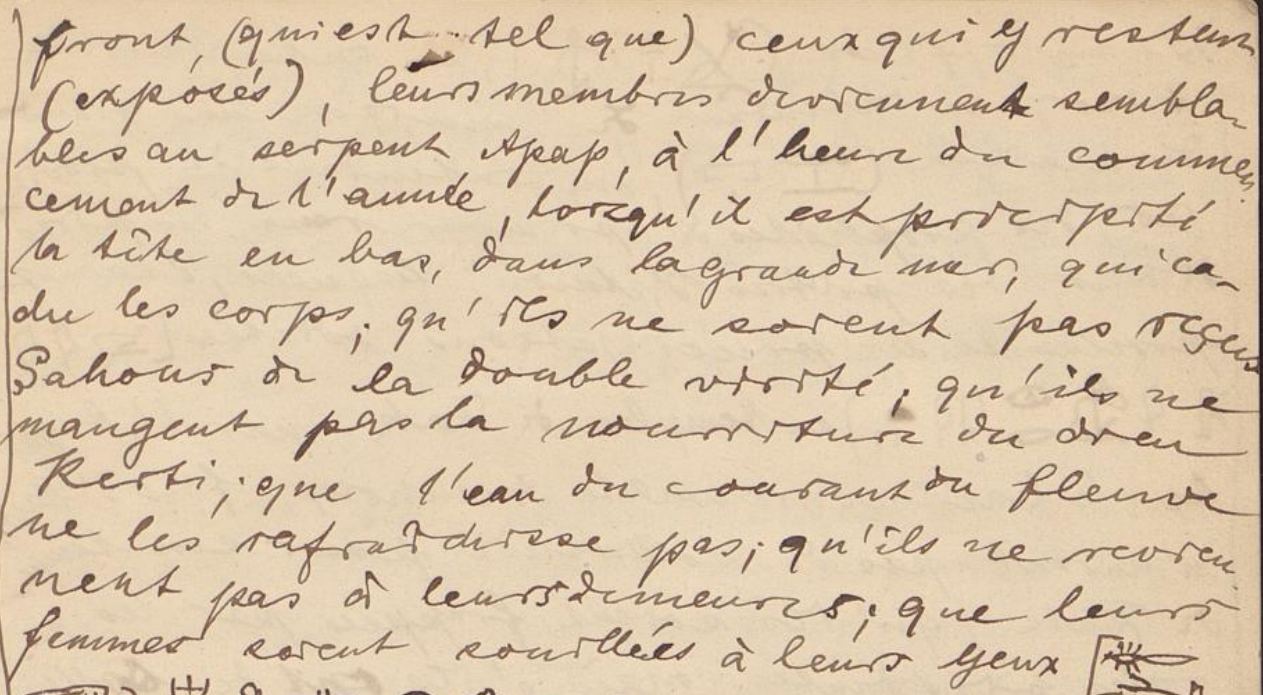 front, (qui est tel que) ceux qui y restent
(exposés), leurs membres deviennent sembla-
bles au serpent Apap, à l'heure du commen-
cement de l'année, lorsqu'il est précipité
la tête en bas, dans la grande mer, qui ca-
che les corps; qu'ils ne soient pas reçus
Sahous de la double vérité; qu'ils ne
mangent pas la nourriture du dieu
Kerti; que l'eau du courant du fleuve
ne les rafraîchisse pas; qu'ils ne revien-
nent pas à leurs demeures; que leurs
femmes soient souillées à leurs yeux [